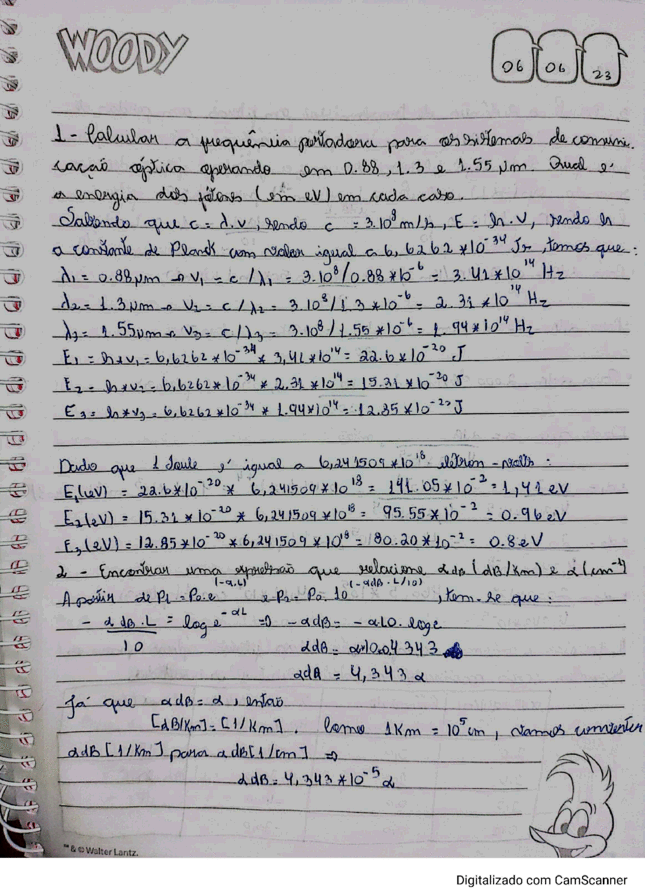 WOODY
06 06 23
1 - Calcular a frequência portadora para os sistemas de comuni.
cação óptica operando em 0.88, 1.3 e 1.55 μm. Qual é
a energia dos fótons (em eV) em cada caso.
Sabendo que c = λ.ν, sendo c = 3.10⁸ m/s, E = h.ν, sendo h
a constante de Planck com valor igual a 6,6262*10⁻³⁴ Js, temos que:
λ₁ = 0.88μm → ν₁ = c/λ₁ = 3.10⁸/0.88*10⁻⁶ = 3.41*10¹⁴ Hz
λ₂ = 1.3μm → ν₂ = c/λ₂ = 3.10⁸/1.3*10⁻⁶ = 2.31*10¹⁴ Hz
λ₃ = 1.55μm → ν₃ = c/λ₃ = 3.10⁸/1.55*10⁻⁶ = 1.94*10¹⁴ Hz
E₁ = h*ν₁ = 6,6262*10⁻³⁴ * 3,41*10¹⁴ = 22.6*10⁻²⁰ J
E₂ = h*ν₂ = 6,6262*10⁻³⁴ * 2.31*10¹⁴ = 15.31*10⁻²⁰ J
E₃ = h*ν₃ = 6,6262*10⁻³⁴ * 1.94*10¹⁴ = 12.85*10⁻²⁰ J
Dado que 1 Joule é igual a 6,241509*10¹⁸ elétron-volts:
E₁(eV) = 22.6*10⁻²⁰ * 6,241509*10¹⁸ = 141.05*10⁻² = 1,41 eV
E₂(eV) = 15.31*10⁻²⁰ * 6,241509*10¹⁸ = 95.55*10⁻² = 0.96 eV
E₃(eV) = 12.85*10⁻²⁰ * 6,241509*10¹⁸ = 80.20*10⁻² = 0.8 eV
2 - Encontrar uma expressão que relacione αdB (dB/km) e α (cm⁻¹)
A partir de P₁ = P₀.e^(-α.L) e P₂ = P₀.10^(-αdB.L/10), tem-se que:
- αdB.L/10 = log e^-αL ⇒ -αdB = -α10.log e
αdB = α10.0,4343
αdB = 4,343α
Já que αdB = α, então
[dB/Km] = [1/Km]. Como 1Km = 10⁵cm, vamos converter
αdB [1/Km] para αdB [1/cm] ⇒
αdB = 4,343*10⁻⁵ α
™ & © Walter Lantz.
Digitalizado com CamScanner